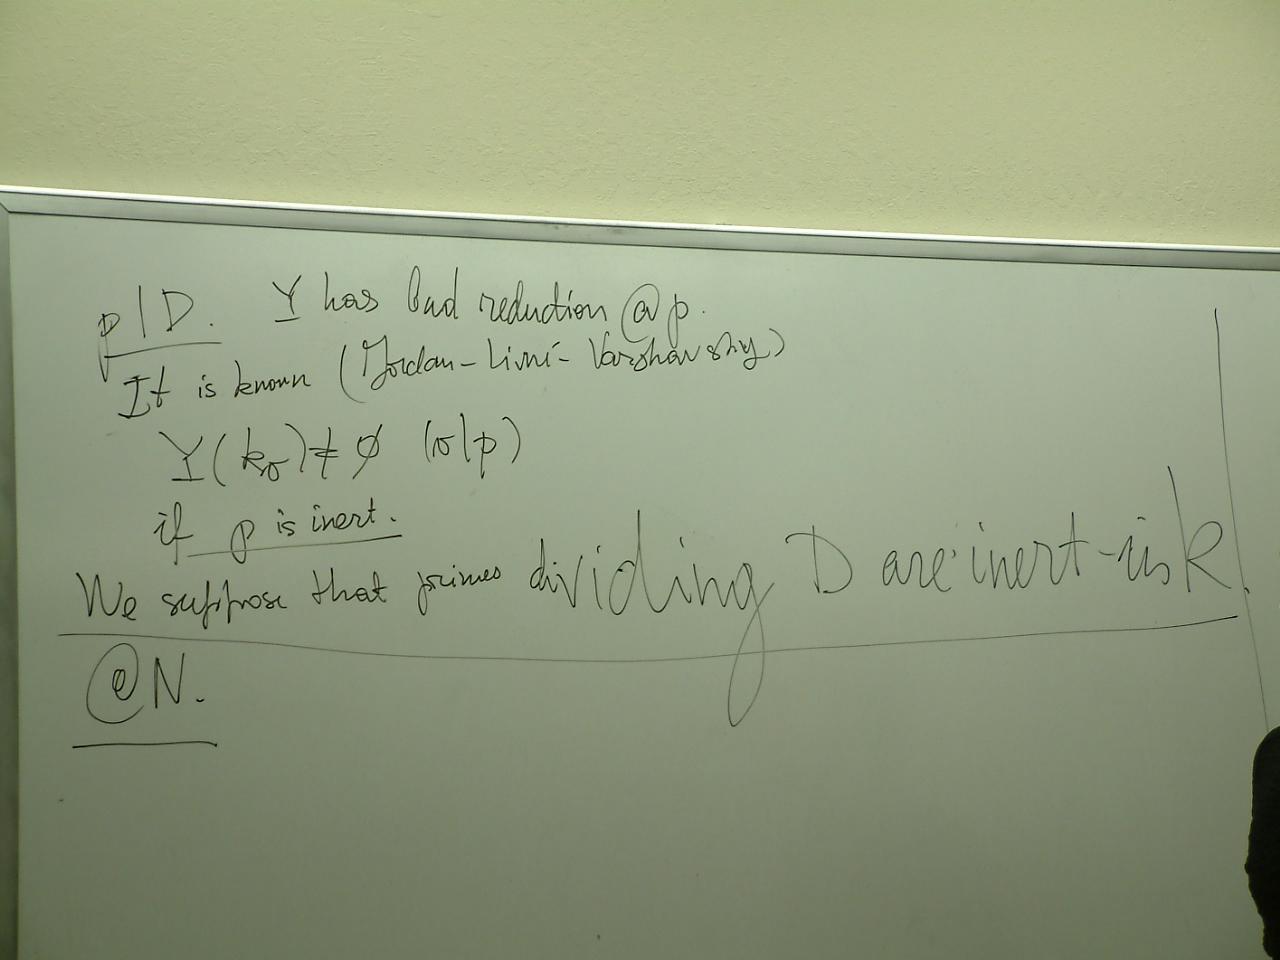 p | D. Y has bad reduction @ p.
It is known (Jordan-Livné-Varshavsky)
Y(k_v) ≠ ∅ (v|p)
if p is inert.
We suppose that primes dividing D are inert in k.
@ N.